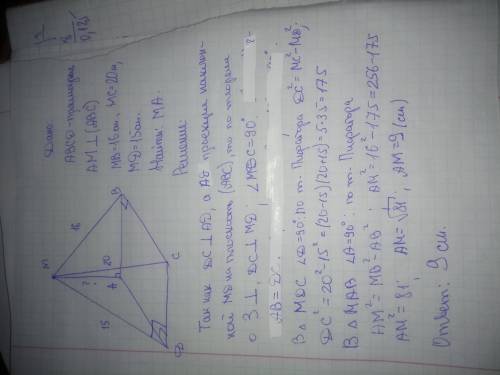 Дано:
ABCD-трапеция
AM⊥(ABC)
MB=16см, MC=20см,
MD=15см.
Найти: MA.
Решение
M
16
B
20
?
A
15
C
D
Так как DC⊥AD, а AD проекция наклон-
ной MD на плоскость (ABC), то по теореме
о 3⊥, DC⊥MD, ∠MDC=90°
AB=DC
В △MDC ∠D=90° по т. Пифагора DC²=MC²-MD²;
DC²=20²-15²=(20-15)(20+15)=5·35=175
В △MAB ∠A=90° по т. Пифагора
AM²=MB²-AB²; AM²=16²-175=256-175
AM²=81, AM=√81; AM=9(см)
Ответ: 9 см.
0,125